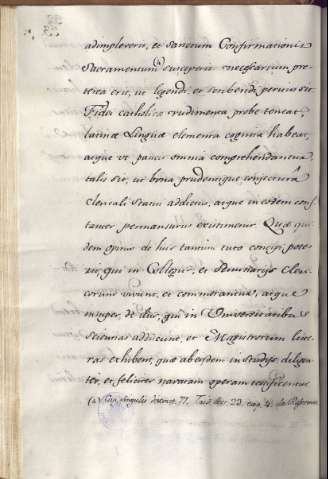 adimpleverit, et Sanctum Confirmacionis
Sacramentum (a) susceperit necessarium pre-
terea erit, ut legendi, et scribendi peritus sit
Fidei catholicæ rudimenta probe teneat,
latinæ Linguæ elementa cognita habeat,
atque ut paucis omnia comprehendantur
talis sit, ut bona prudentique conjectura
Clericali Statui addictus, atque in eodem cons-
tanter permansurus existimetur. Quæ qui-
dem opinio de his tantum tuto concipi pote-
rit, qui in Collegiis, et Seminariis Cleri-
corum vivunt, et commorantur, atque
insuper, de illis, qui in Universitatibus
scientias addiscunt, et Magistrorum lite-
ras exhibent, quæ ab eisdem in studiis diligen-
ter, et feliciter navatam operam testificentur
(a) Cap. singulis distinct. 77. Trid. sess. 23. cap. 4. de Reformat.